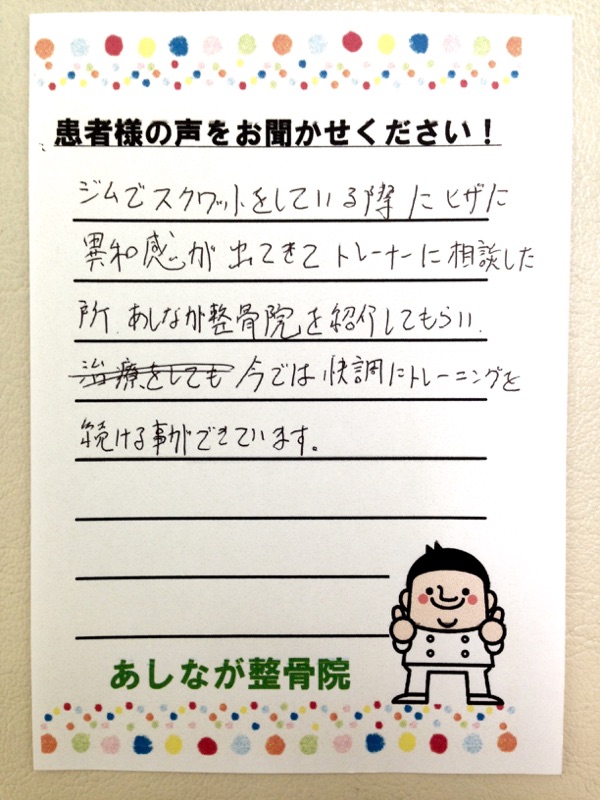 患者様の声をお聞かせください！
ジムでスクワットをしている際にヒザに
異和感が出てきてトレーナーに相談した
所、あしなが整骨院を紹介してもらい、
治療をしても 今では快調にトレーニングを
続ける事ができています。
あしなが整骨院